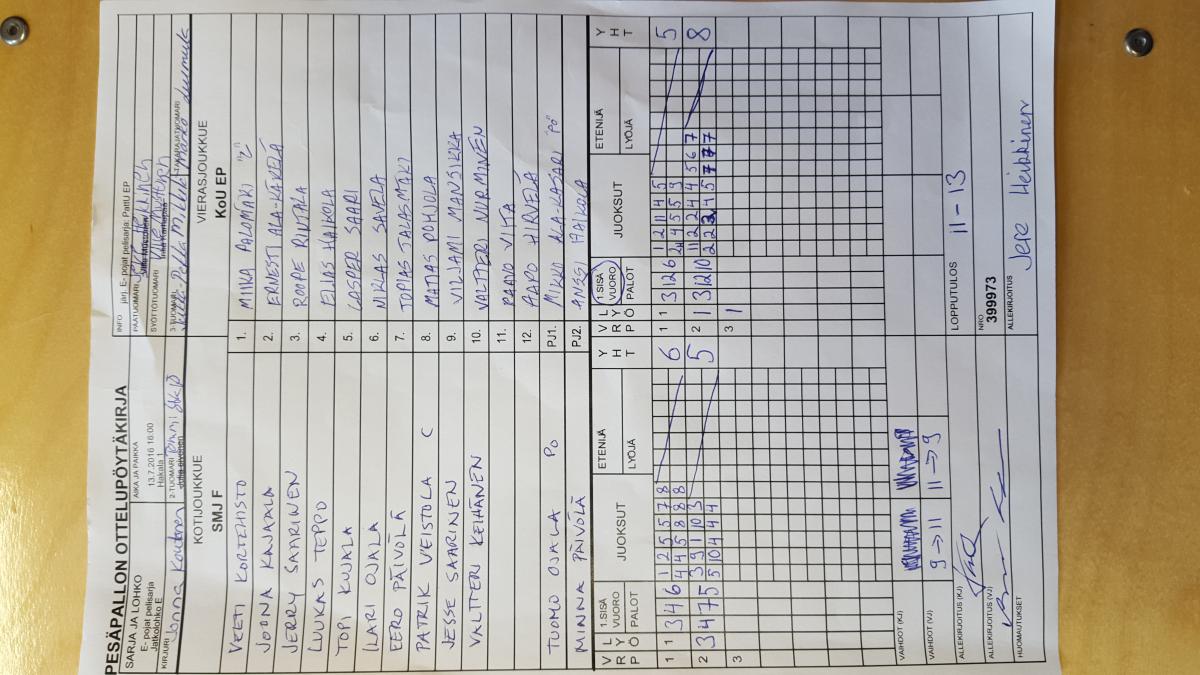 PESÄPALLON OTTELUPÖYTÄKIRJA
SARJA JA LOHKO
E- pojat pelisarja
Jatkolohko E
AIKA JA PAIKKA
13.7.2016 16:00
Hakala 1
INFO järj. E- pojat pelisarja: PattU EP
PÄÄTUOMARI
SYÖTTÖTUOMARI
KIRJURI
2-TUOMARI
3-TUOMARI
TAKARAJATUOMARI
KOTIJOUKKUE
SMJ F
VIERASJOUKKUE
KoU EP
VEETI KORTEHISTO 1. MIIKA PALOMÄKI
JOONA KAJAALA 2. ERNESTI ALA-KÄKELÄ
JERRY SAARINEN 3. ROOPE RINTALA
LUUKAS TEPPO 4. ELIAS HAIKOLA
TOPI KUJALA 5. CASPER SAARI
ILARI OJALA 6. NIKLAS SAVELA
EERO PÄIVÖLÄ 7. TOPIAS JALASMÄKI
PATRIK VEISTOLA C 8. MATIAS POHJOLA
JESSE SAARINEN 9. VILJAMI MANSIKKA
VALTTERI KEIHÄNEN 10. VALTTERI NIIRMINEN
11. PAAVO VIITA
12. AAPO HIRVELÄ
TUOMO OJALA PO PJ1. MIKKO ALA-KASARI "PO"
MINNA PÄIVÖLÄ PJ2. ANSSI HAIKOLA
V R P L Y Ö 1.SISÄ VUORO PALOT JUOKSUT ETENIJÄ LYÖJÄ Y H T V R P L Y Ö 1.SISÄ VUORO PALOT JUOKSUT ETENIJÄ LYÖJÄ Y H T
1 1 3 4 6 1 2 5 5 7 8 6 1 1 3 12 6 1 2 11 4 5 5
4 4 5 8 8 8 2 4 5 5 9
2 3 4 7 5 3 9 1 10 3 5 2 1 3 12 10 11 2 2 4 4 5 6 7 8
5 10 4 4 4
3 3 1
VAIHDOT (KJ)
VAIHDOT (VJ) 9→11 11→9
ALLEKIRJOITUS (KJ) LOPPUTULOS 11-13
ALLEKIRJOITUS (VJ) NRO
399973
HUOMAUTUKSET ALLEKIRJOITUS Jere Heikkinen